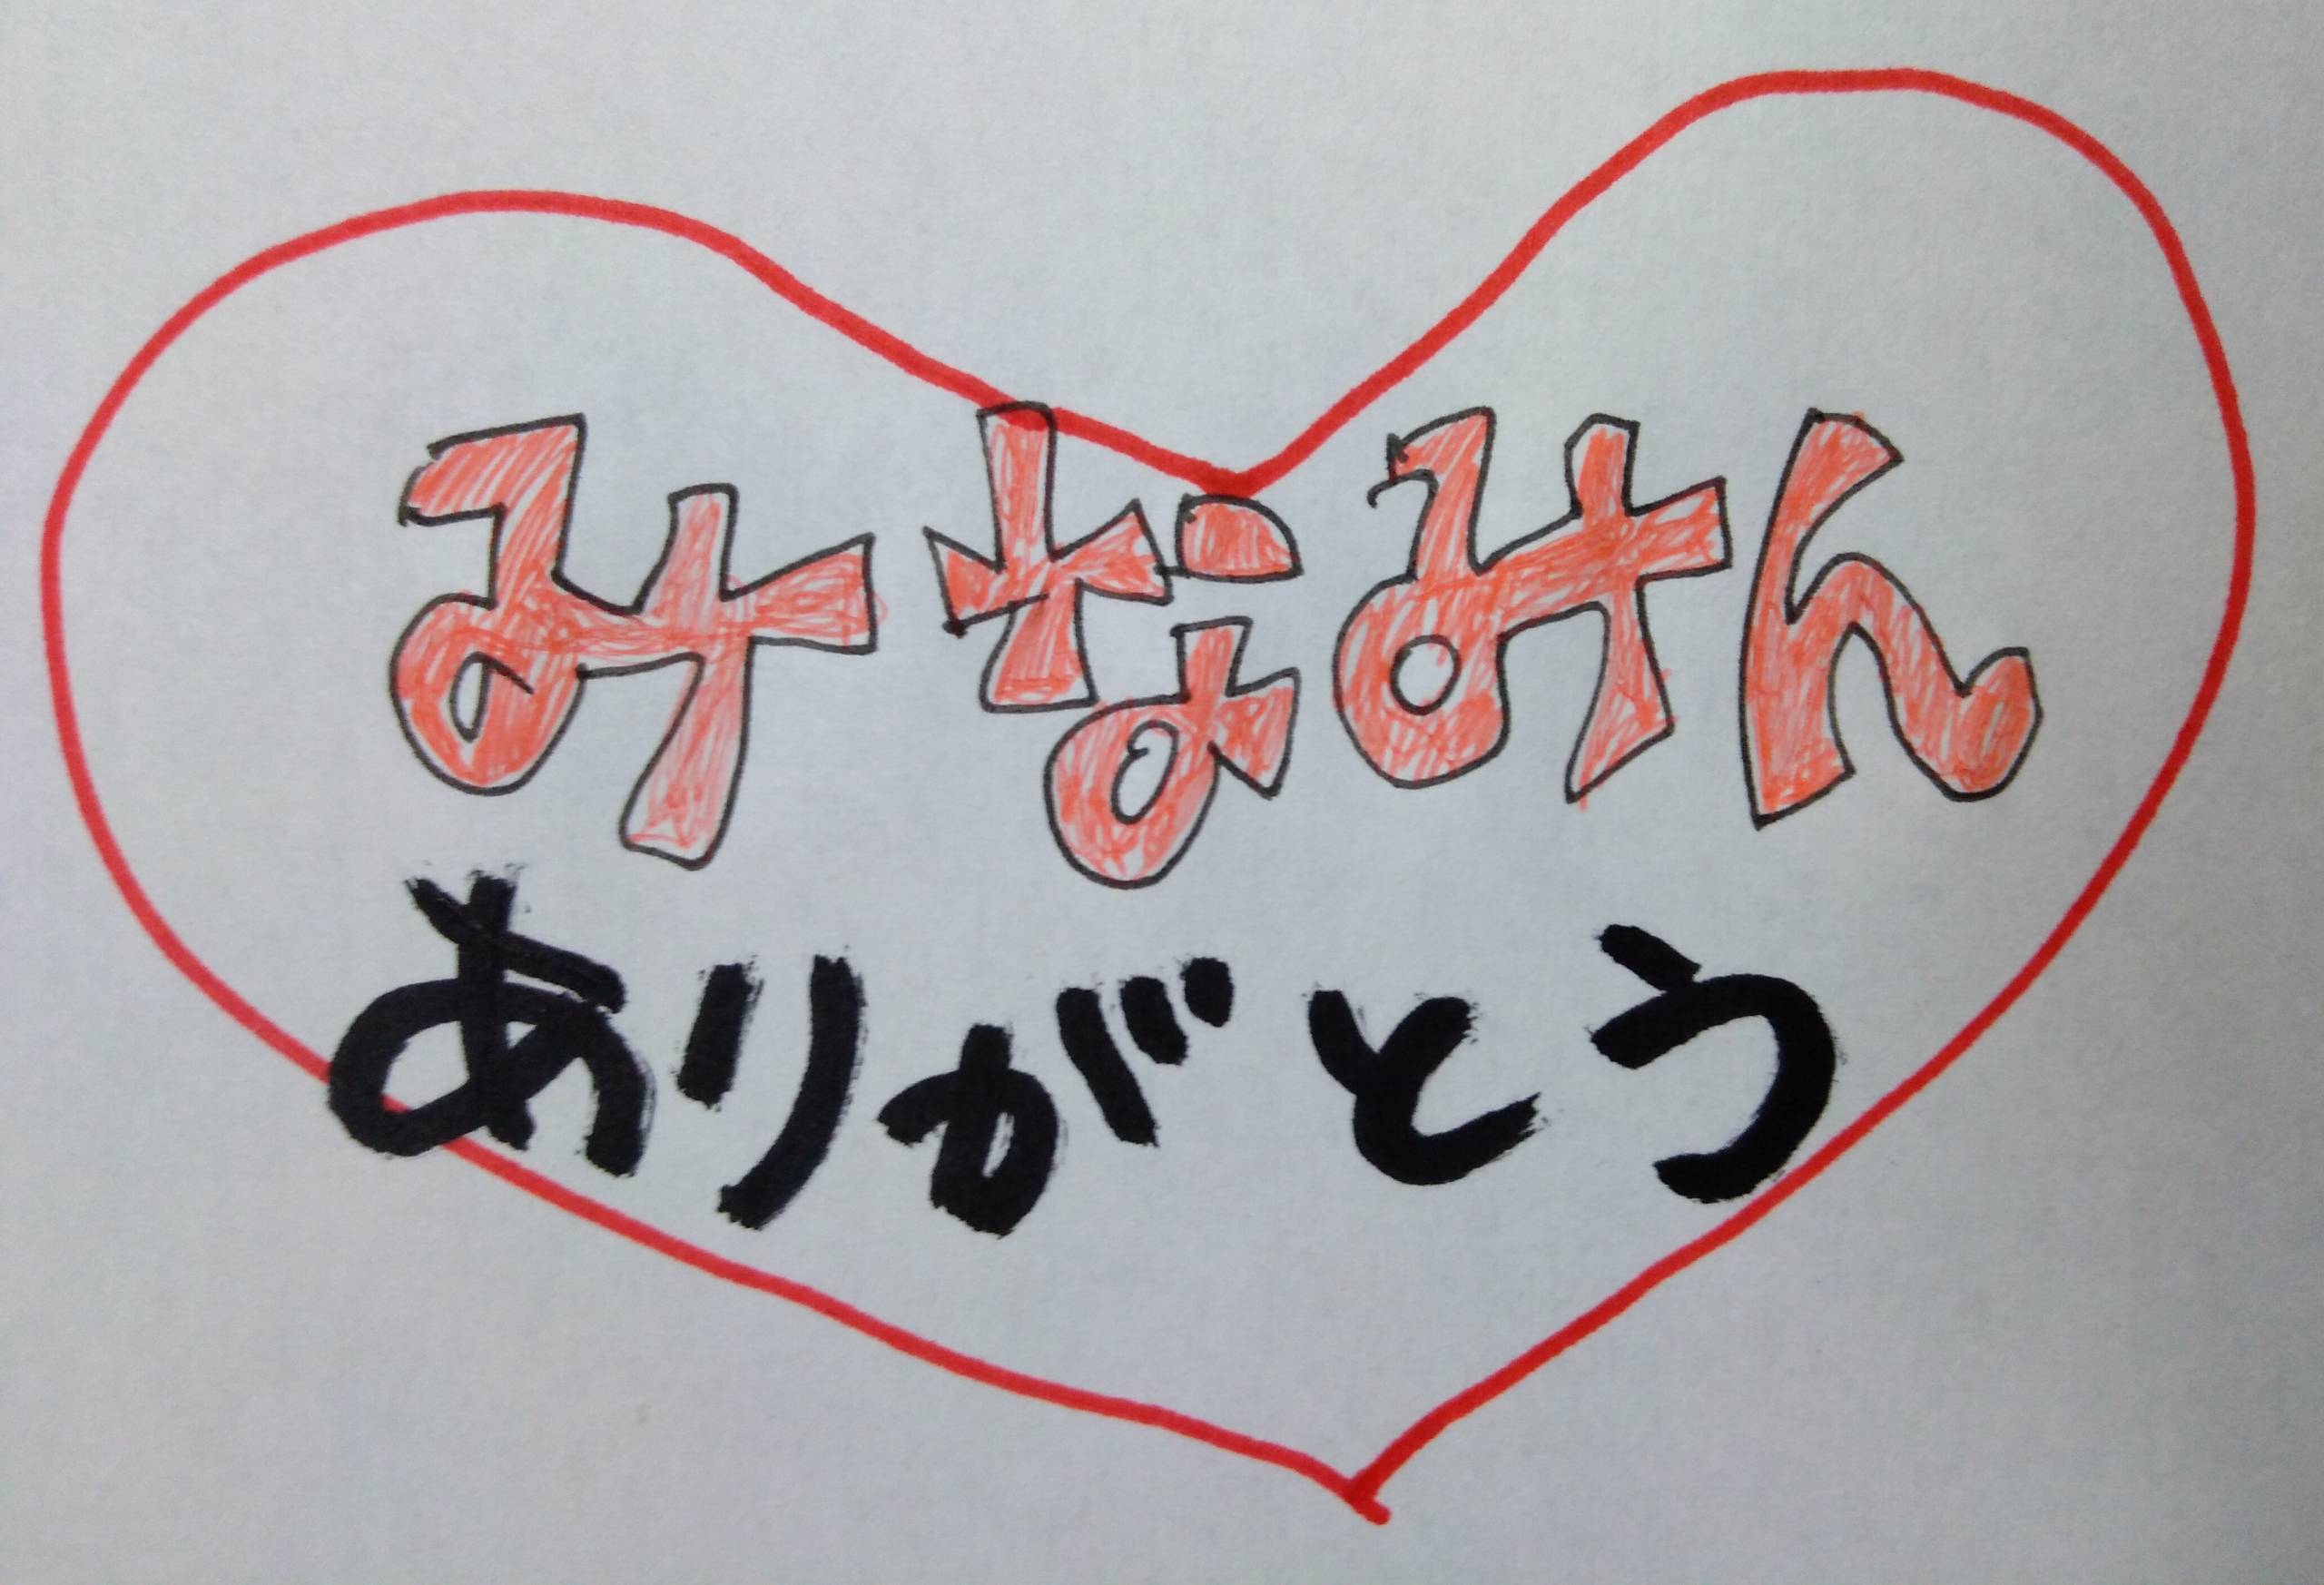 みなみん
ありがとう